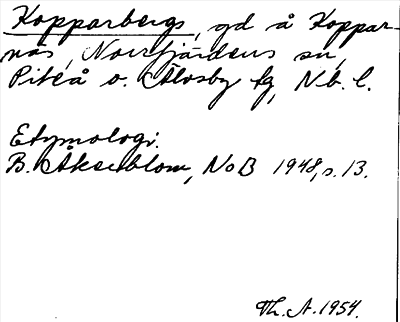 Kopparbergs, gd å Koppar-
näs, Norrfjärdens sn,
Piteå o. Älvsby tg, Nb. l.
Etymologi.
B. Åkerblom, NoB 1948, s. 13.
Th. A. 1954.